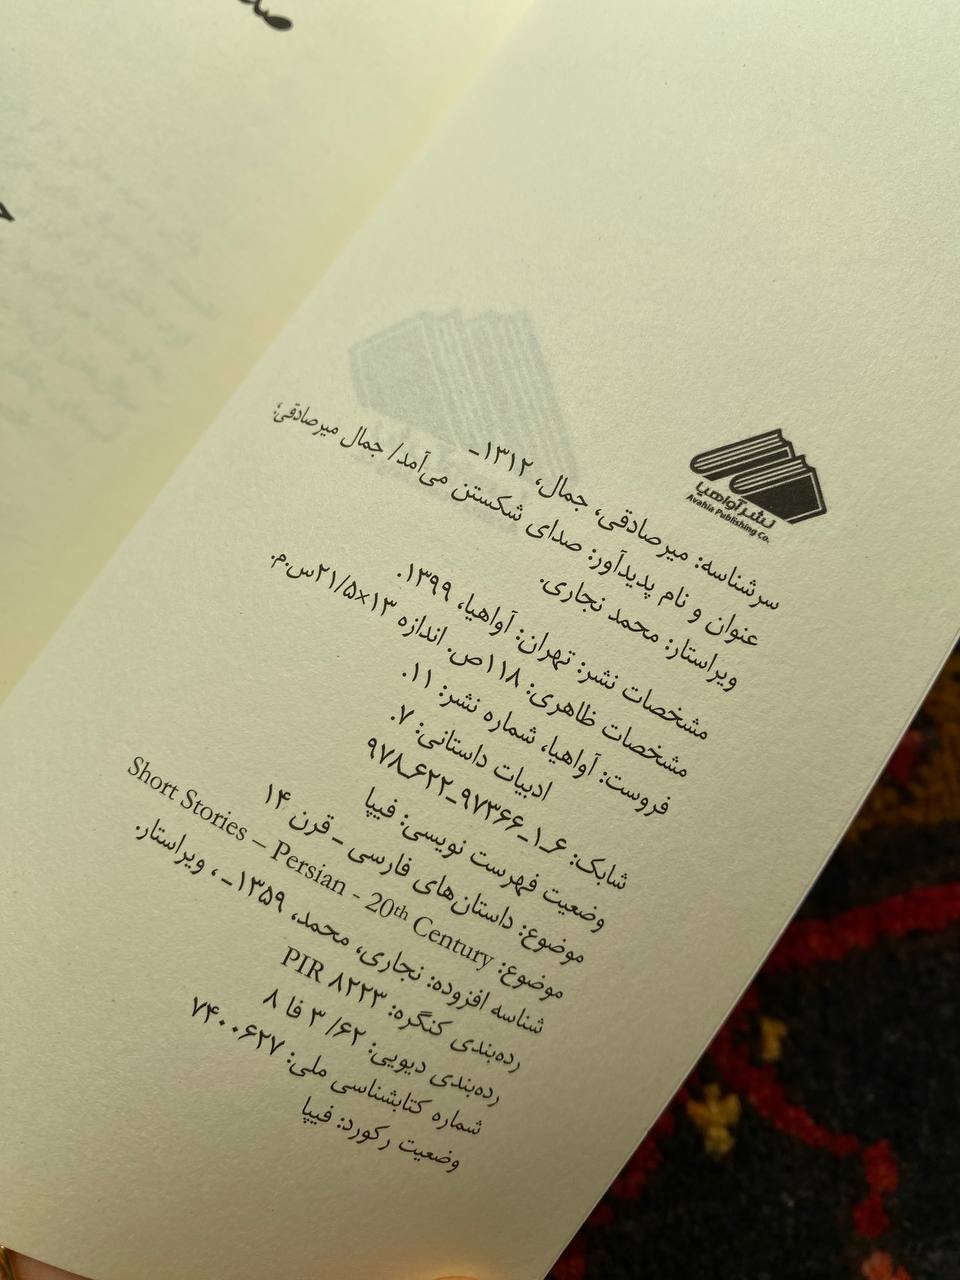 نشر آواهیا
Avahia Publishing Co.
سرشناسه: میرصادقی، جمال، ۱۳۱۲ـ
عنوان و نام پدیدآور: صدای شکستن می‌آمد/ جمال میرصادقی؛
ویراستار: محمد نجاری.
مشخصات نشر: تهران: آواهیا، ۱۳۹۹.
مشخصات ظاهری: ۱۱۸ص. اندازه ۱۳×۲۱/۵س.م.
فروست: آواهیا، شماره نشر: ۱۱.
ادبیات داستانی: ۷.
شابک: ۶ـ۱ـ۹۷۳۶۶ـ۶۲۲ـ۹۷۸
وضعیت فهرست نویسی: فیپا
موضوع: داستان‌های فارسی ـ قرن ۱۴
موضوع: Short Stories – Persian - 20th Century
شناسه افزوده: نجاری، محمد، ۱۳۵۹ـ ، ویراستار.
رده‌بندی کنگره: PIR ۸۲۲۳
رده‌بندی دیویی: ۶۲/ ۳ فا ۸
شماره کتابشناسی ملی: ۷۴۰۰۶۲۷
وضعیت رکورد: فیپا